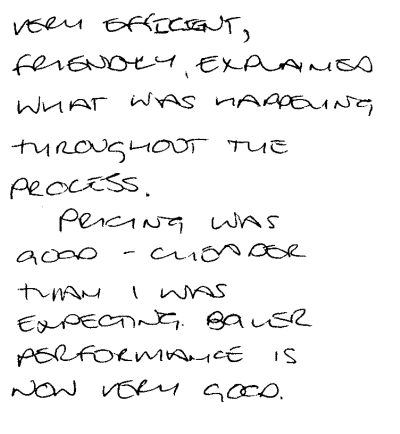 VERY EFFICIENT,
FRIENDLY, EXPLAINED
WHAT WAS HAPPENING
THROUGHOUT THE
PROCESS.
PRICING WAS
GOOD - CHEAPER
THAN I WAS
EXPECTING. BOILER
PERFORMANCE IS
NOW VERY GOOD.